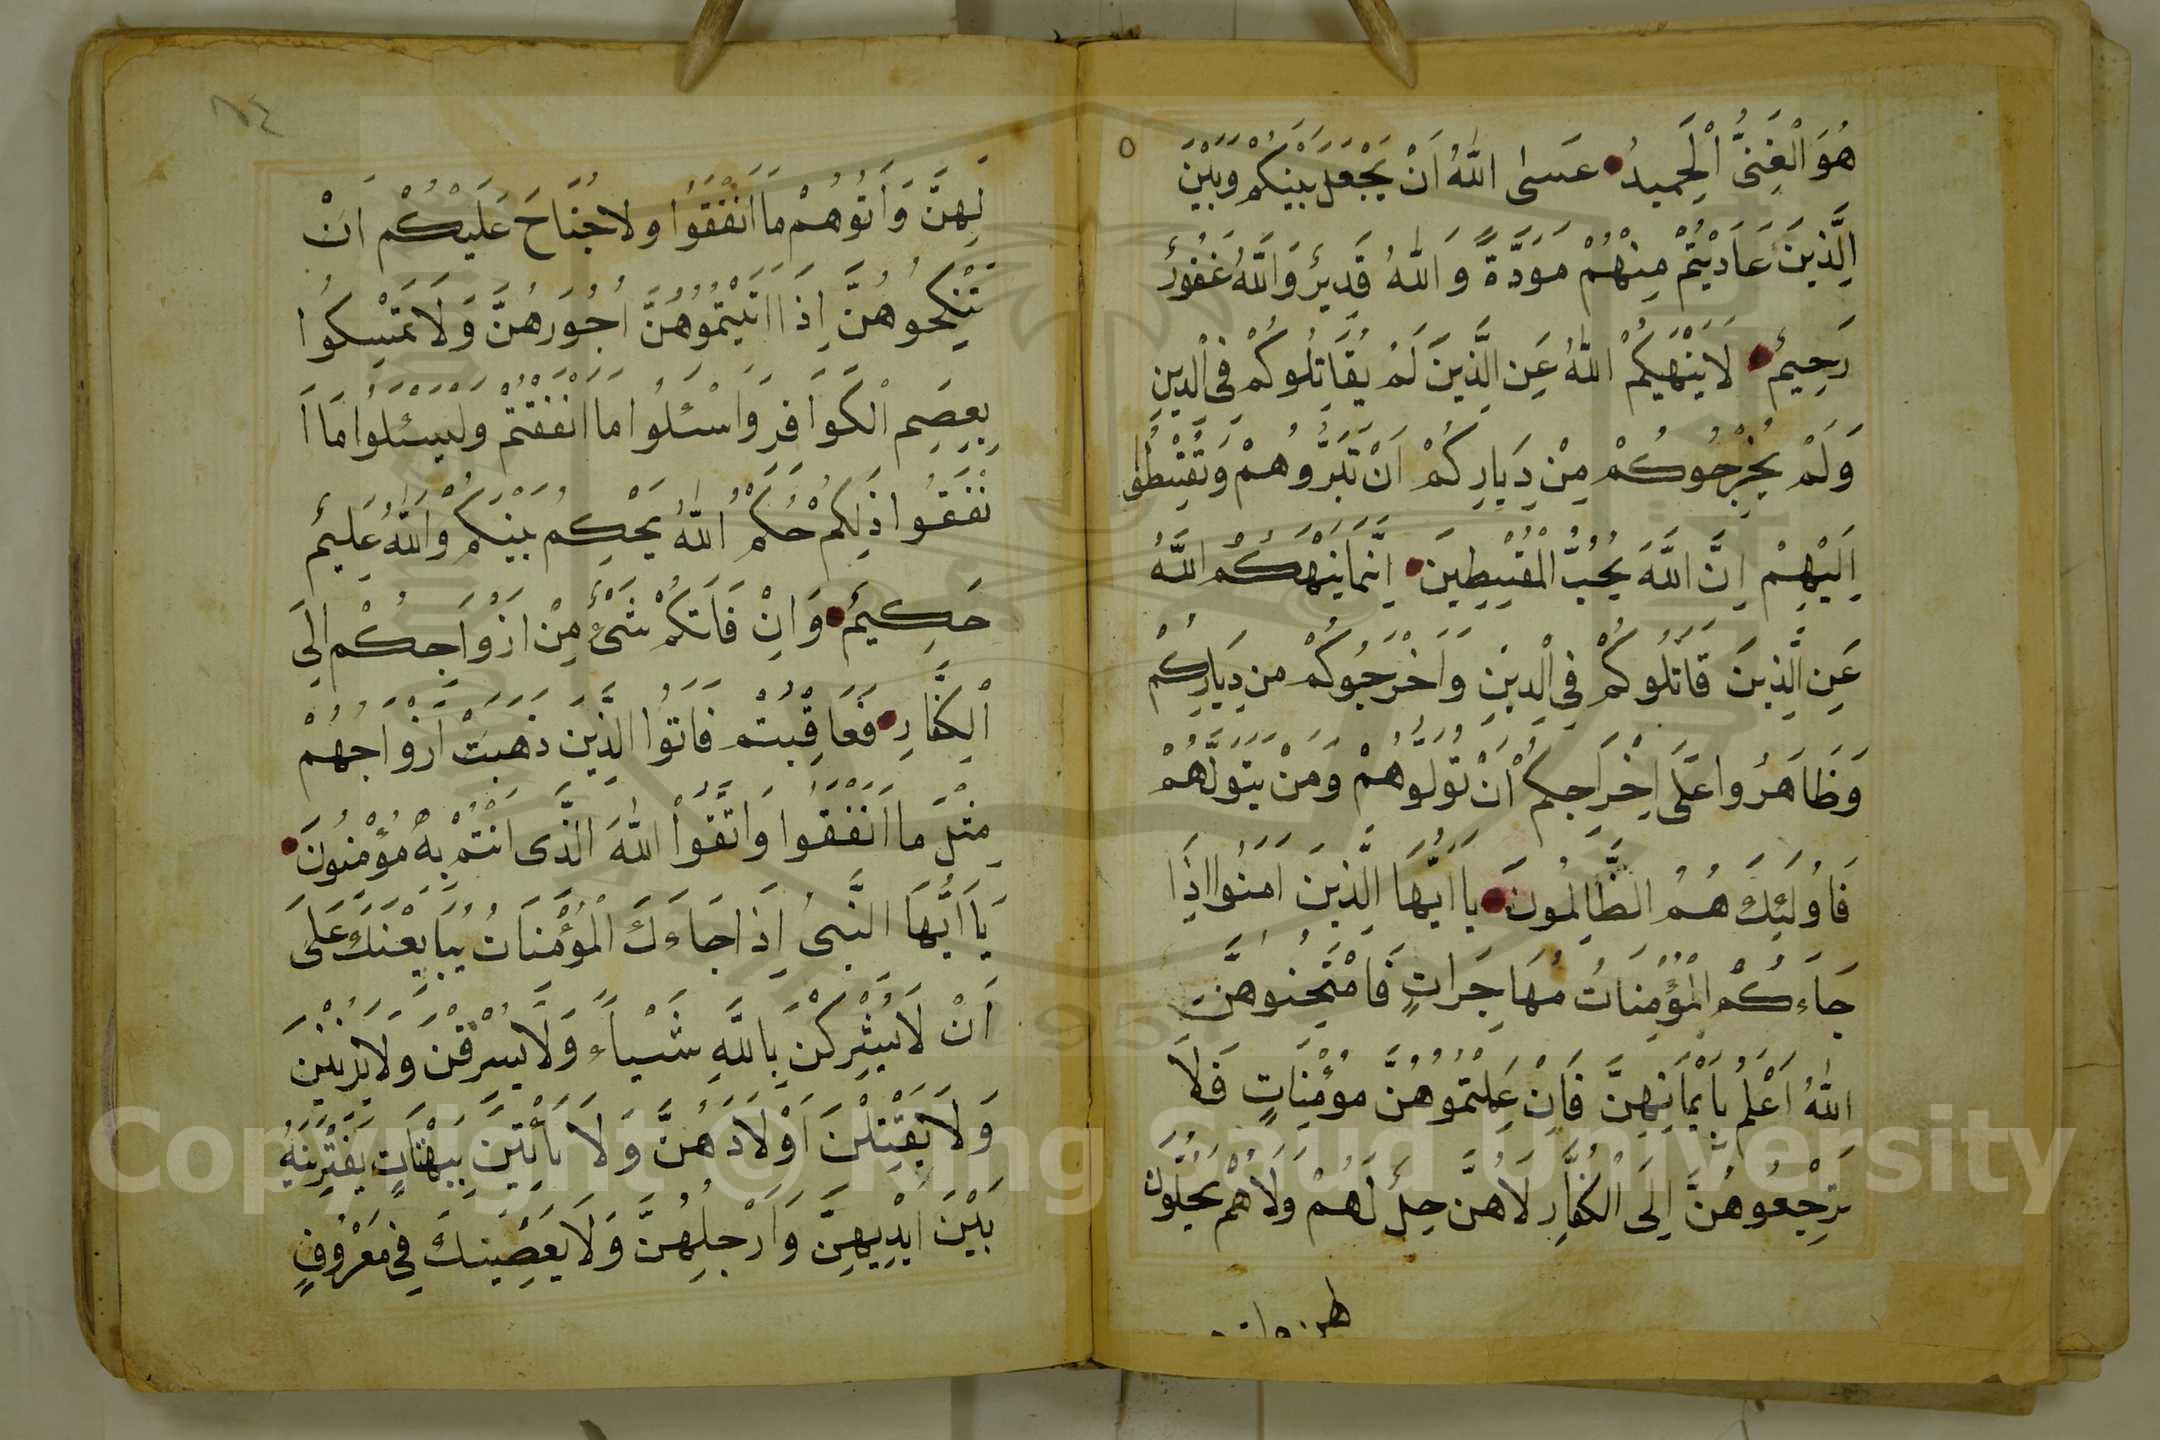 هُوَ الْغَنِىُّ الْحَمِيدُ عَسٰى اللّٰهُ اَنْ يَجْعَلَ بَيْنَكُمْ وَبَيْنَ
الَّذِينَ عَادَيْتُمْ مِنْهُمْ مَوَدَّةً وَ اللّٰهُ قَدِيرٌ وَاللَّهُ غَفُورٌ
رَحِيمٌ لَا يَنْهَيكُمْ اللّٰهُ عَنِ الَّذِينَ لَمْ يُقَاتِلُوكُمْ فِى الدِّينِ
وَلَمْ يُخْرِجُوكُمْ مِنْ دِيَارِكُمْ اَنْ تَبَرُّوهُمْ وَتُقْسِطُوا
اِلَيْهِمْ اِنَّ اللَّهَ يُحِبُّ الْمُقْسِطِينَ اِنَّمَا يَنْهَكُمْ اللَّهُ
عَنِ الَّذِينَ قَاتَلُوكُمْ فِى الدِّينِ وَاَخْرَجُوكُمْ مِنْ دِيَارِكُمْ
وَظَاهَرُوا عَلَى اِخْرَاجِكُمْ اَنْ تَوَلَّوْهُمْ وَمَنْ يَتَوَلَّهُمْ
فَاُولَئِكَ هُمُ الظَّالِمُونَ يَا اَيُّهَا الَّذِينَ اَمَنُوا اِذَا
جَاءَكُمْ الْمُؤْمِنَاتُ مُهَاجِرَاتٍ فَامْتَحِنُوهُنَّ
اللّٰهُ اَعْلَمُ بِاَيْمَانِهِنَّ فَاِنْ عَلِمْتُمُوهُنَّ مُؤْمِنَاتٍ فَلَا
تَرْجِعُوهُنَّ اِلَى الْكُفَّارِ لَا هُنَّ حِلٌّ لَهُمْ وَلَا هُمْ يَحِلُّونَ
٥
١٨٤
لَهِنَّ وَاَتُوهُمْ مَا اَنْفَقُوا وَلَا جُنَاحَ عَلَيْكُمْ اَنْ
تَنْكِحُوهُنَّ اِذَا اَتَيْتُمُوهُنَّ اُجُورَهُنَّ وَلَا تَمْسِكُوا
بِعِصَمِ الْكَوَافِرِ وَاسْئَلُوا مَا اَنْفَقْتُمْ وَلْيَسْئَلُوا مَا اَ
نْفَقُوا ذَلِكُمْ حُكْمُ اللّٰهُ يَحْكِمُ بَيْنَكُمْ وَاللّٰهُ عَلِيمٌ
حَكِيمٌ وَاِنْ فَاتَكُمْ شَىْءٌ مِنْ اَزْوَاجِكُمْ اِلَى
الْكُفَّارِ فَعَاقِبْتُمْ فَاَتُوا الَّذِينَ ذَهَبَتْ اَزْوَاجُهُمْ
مِثْلَ مَا اَنْفَقُوا وَاتَّقُوا اللّٰهَ الَّذِى اَنْتُمْ بِهِ مُؤْمِنُونَ
يَا اَيُّهَا النَّبِىُ اِذَا جَاءَكَ الْمُؤْمِنَاتُ يُبَايِعْنَكَ عَلَى
اَنْ لَا يُشْرِكْنَ بِاللَّهِ شَيْاءً وَلَا يَسْرِقْنَ وَلَا يَزْنِينَ
وَلَا يَقْتِلْنَ اَوْلَادَهُنَّ وَلَا يَأْتِينَ بِبُهْتَاتٍ يَفْتَرِينَهُ
بَيْنَ اَيْدِيهِنَّ وَاَرْجُلِهِنَّ وَلَا يَعْصِينَكَ فِى مَعْرُوفٍ
Copyright © King Saud University